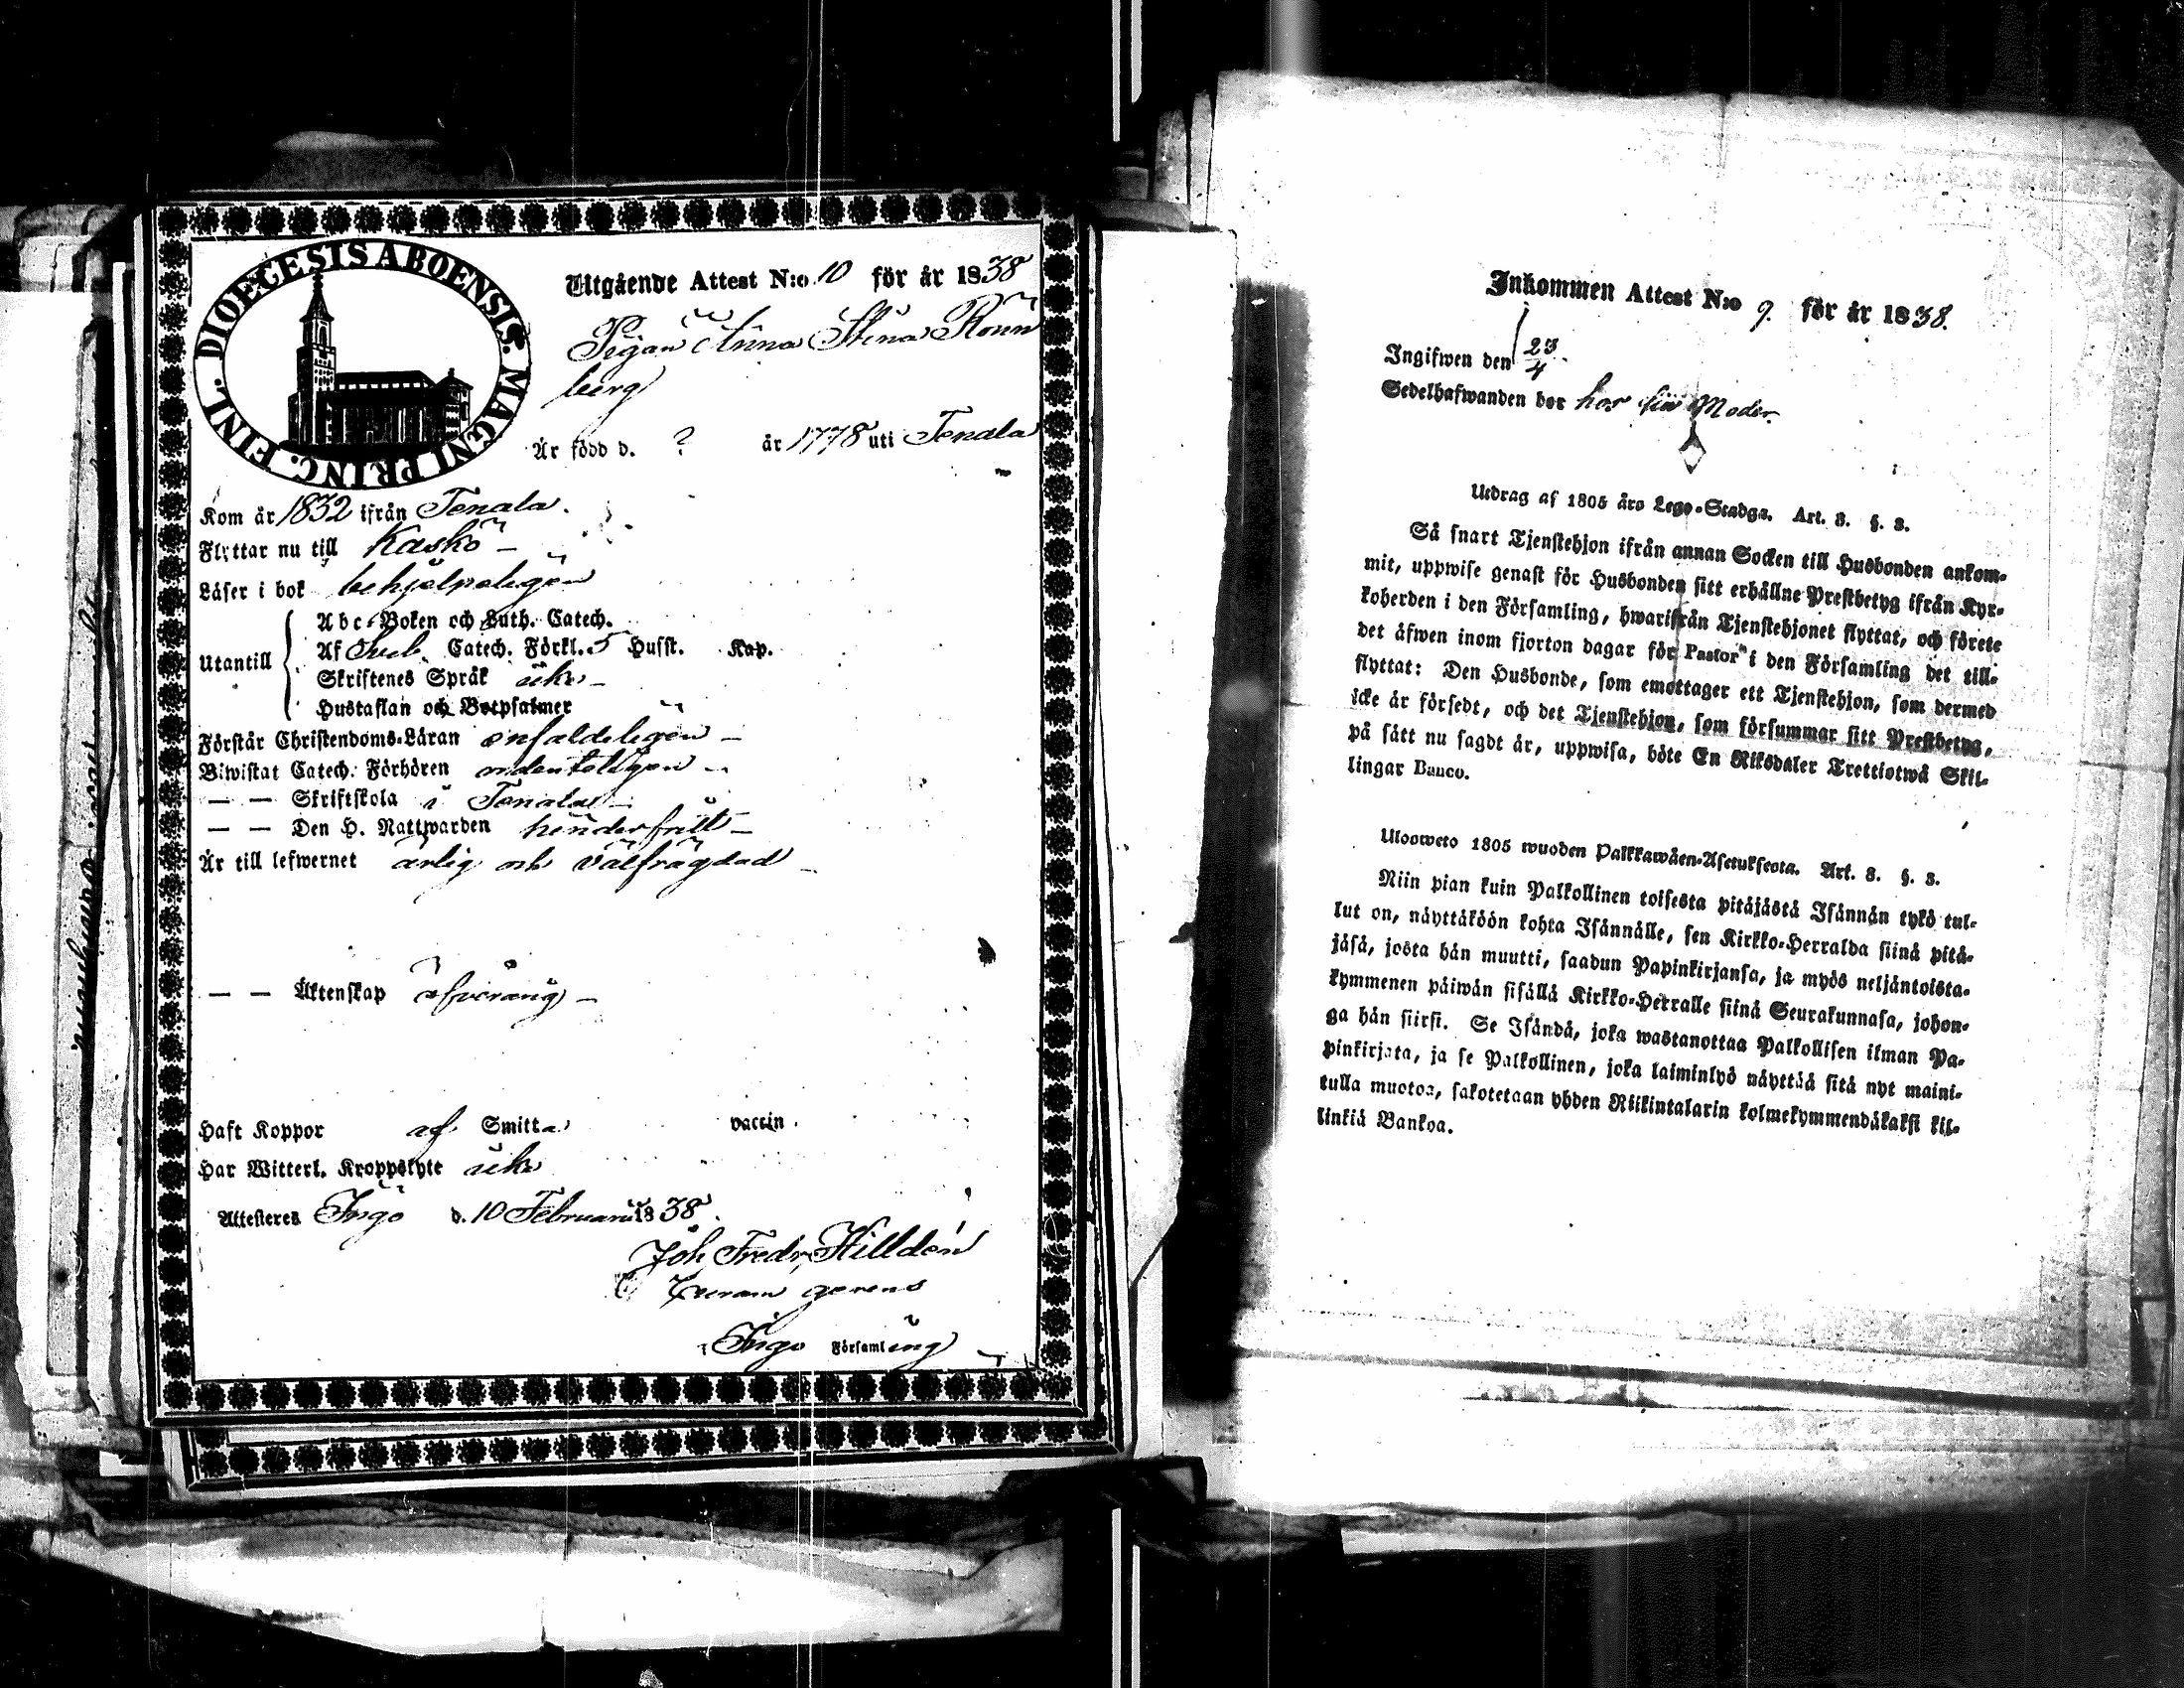 DIOECESIS ABOENSIS. MAGNI PRINC. FINL.
Utgående Attest N:o 10 för år 1838
Pigan Anna Stina Rönn
berg
Är född d. ? år 1778 uti Tenala
Kom år 1832 ifrån Tenala.
Flyttar nu till Kaskö –
Läser i bok behjelpeligen
Utantill
Abc-Boken och Luth. Catech.
Af Sveb. Catech. Förkl. 5 Hufst. Kap.
Skriftenes Språk icke –
Hustaflan och Botpsalmer
Förstår Christendoms-Läran enfaldeligen –
Biwistat Catech. Förhören ordenteligen –
— — Skriftskola i Tenala –
— — Den H. Nattwarden hinderfritt –
Är till lefwernet ärlig och välfrägdad –
— — Äktenskap –
Haft Koppor af Smitta vaccin.
Har Witterl. Kroppslyte icke
Attesteres Ingo d. 10 Februarii 1838.
Joh. Fredr. Hilldén
Curam gerens
Ingo Församling
Inkommen Attest N:o 9. för år 1838.
Ingifwen den 23/4.
Sedelhafwanden bor hos sin Moder.
Utdrag af 1805 års Lego-Stadga. Art. 3. §. 3.
Så snart Tjenstehjon ifrån annan Socken till Husbonden ankom-
mit, uppwise genast för Husbonden sitt erhållne Prestbetyg ifrån Kyr-
koherden i den Församling, hwarifrån Tjenstehjonet flyttat, och förete
det äfwen inom fjorton dagar för Pastor i den Församling det till-
flyttat: Den Husbonde, som emottager ett Tjenstehjon, som dermed
icke är försedt, och det Tjenstehjon, som försummar sitt Prestbetyg,
på sätt nu sagdt är, uppwisa, böte En Riksdaler Trettiotwå Skil-
lingar Banco.
Ulosweto 1805 wuoden Palkkawäen-Asetuksesta. Art. 3. §. 3.
Niin pian kuin Palkollinen toisesta pitäjästä Isännän tykö tul-
lut on, näyttäköön kohta Isännälle, sen Kirkko-Herralda siinä pitä-
jäsä, josta hän muutti, saadun Papinkirjansa, ja myös neljäntoista-
kymmenen päiwän sisällä Kirkko-Herralle siinä Seurakunnasa, johon-
ga hän siirsi. Se Isändä, joka wastanottaa Palkollisen ilman Pa-
pinkirjata, ja se Palkollinen, joka laiminlyö näyttää sitä nyt maini-
tulla muotoa, sakotetaan yhden Riikintalarin kolmekymmendäkaksi kil-
linkiä Bankoa.